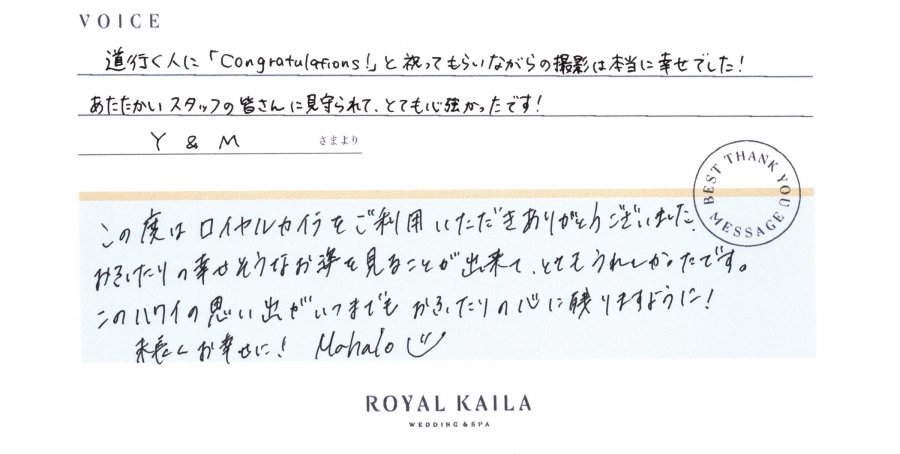 VOICE
道行く人に「Congratulations!」と祝ってもらいながらの撮影は本当に幸せでした！
あたたかいスタッフの皆さんに見守られて、とても心強かったです！
Y & M さまより
BEST THANK YOU MESSAGE
この度はロイヤルカイラをご利用いただきありがとうございました。
おふたりの幸せそうなお姿を見ることが出来て、とてもうれしかったです。
このハワイの思い出がいつまでもおふたりの心に残りますように！
末長くお幸せに！ Mahalo
ROYAL KAILA
WEDDING & SPA